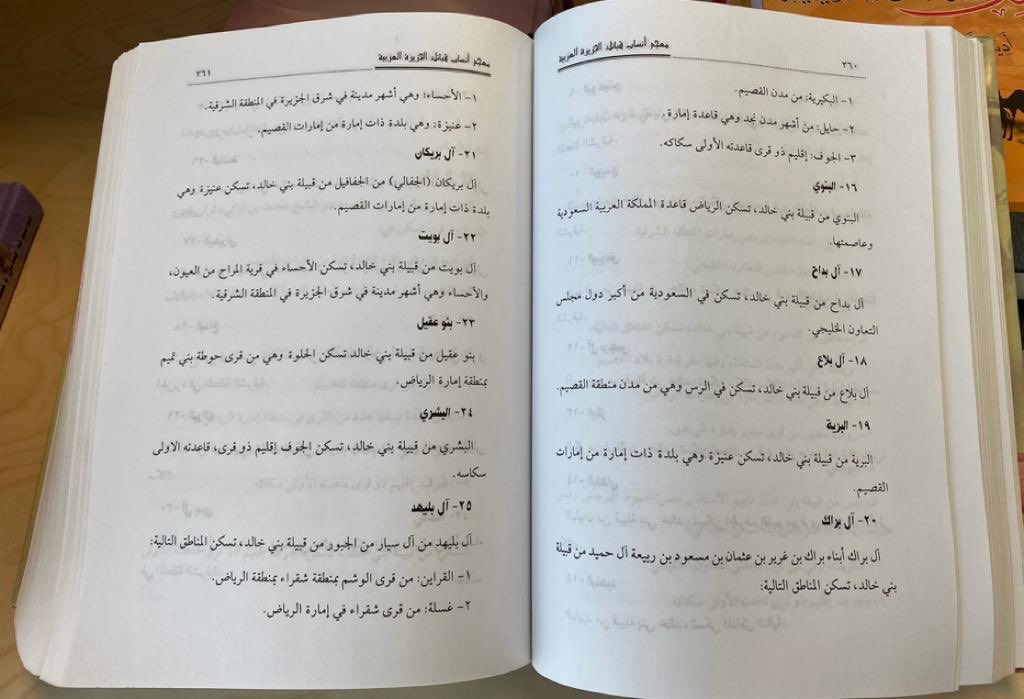 معجم أنساب قبائل الجزيرة العربية
٣٦٠
١- البكيرية: من مدن القصيم.
٢- حايل: من أشهر مدن نجد وهي قاعدة إمارة.
٣- الجوف: إقليم ذو قرى قاعدته الأولى سكاكه.
١٦- البنوي
البنوي من قبيلة بني خالد، تسكن الرياض قاعدة المملكة العربية السعودية
وعاصمتها.
١٧- آل بداح
آل بداح من قبيلة بني خالد، تسكن في السعودية من أكبر دول مجلس
التعاون الخليجي.
١٨- آل بلاع
آل بلاع من قبيلة بني خالد، تسكن في الرس وهي من مدن منطقة القصيم.
١٩- البرية
البرية من قبيلة بني خالد، تسكن عنيزة وهي بلدة ذات إمارة من إمارات
القصيم.
٢٠- آل براك
آل براك أبناء براك بن غرير بن عثمان بن مسعود بن ربيعة آل حميد من قبيلة
بني خالد، تسكن المناطق التالية:
معجم أنساب قبائل الجزيرة العربية
٣٦١
١- الأحساء: وهي أشهر مدينة في شرق الجزيرة في المنطقة الشرقية.
٢- عنيزة: وهي بلدة ذات إمارة من إمارات القصيم.
٢١- آل بريكان
آل بريكان (الجفالي) من الجفافيل من قبيلة بني خالد، تسكن عنيزة وهي
بلدة ذات إمارة من إمارات القصيم.
٢٢- آل بويت
آل بويت من قبيلة بني خالد، تسكن الأحساء في قرية المراح من العيون،
والأحساء وهي أشهر مدينة في شرق الجزيرة في المنطقة الشرقية.
٢٣- بنو عقيل
بنو عقيل من قبيلة بني خالد تسكن الحلوة وهي من قرى حوطة بني تميم
بمنطقة إمارة الرياض.
٢٤- البشري
البشري من قبيلة بني خالد، تسكن الجوف إقليم ذو قرى، قاعدته الاولى
سكاسه.
٢٥- آل بليهد
آل بليهد من آل سيار من الجبور من قبيلة بني خالد، تسكن المناطق التالية:
١- القراين: من قرى الوشم بمنطقة شقراء بمنطقة الرياض.
٢- غسلة: من قرى شقراء في إمارة الرياض.